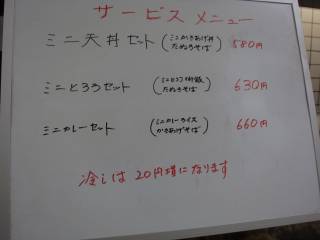 サービスメニュー
ミニ天丼セット (ミニかきあげ丼 たぬきそば) 580円
ミニとろろセット (ミニとろろ御飯 たぬきそば) 630円
ミニカレーセット (ミニカレーライス かきあげそば) 660円
冷しは20円増になります